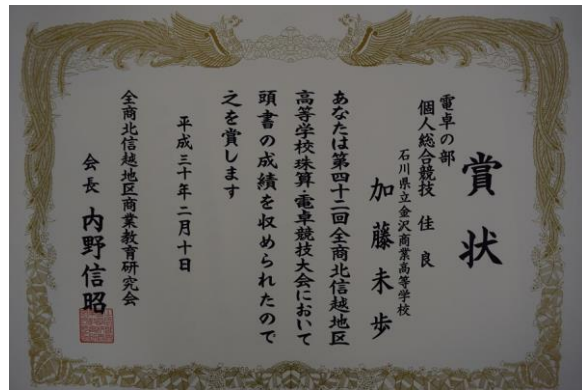 賞状
電卓の部
個人総合競技 佳良
石川県立金沢商業高等学校
加藤未歩
あなたは第四十二回全商北信越地区
高等学校珠算・電卓競技大会において
頭書の成績を収められたので
之を賞します
平成三十年二月十日
全商北信越地区商業教育研究会
会長 内野信昭